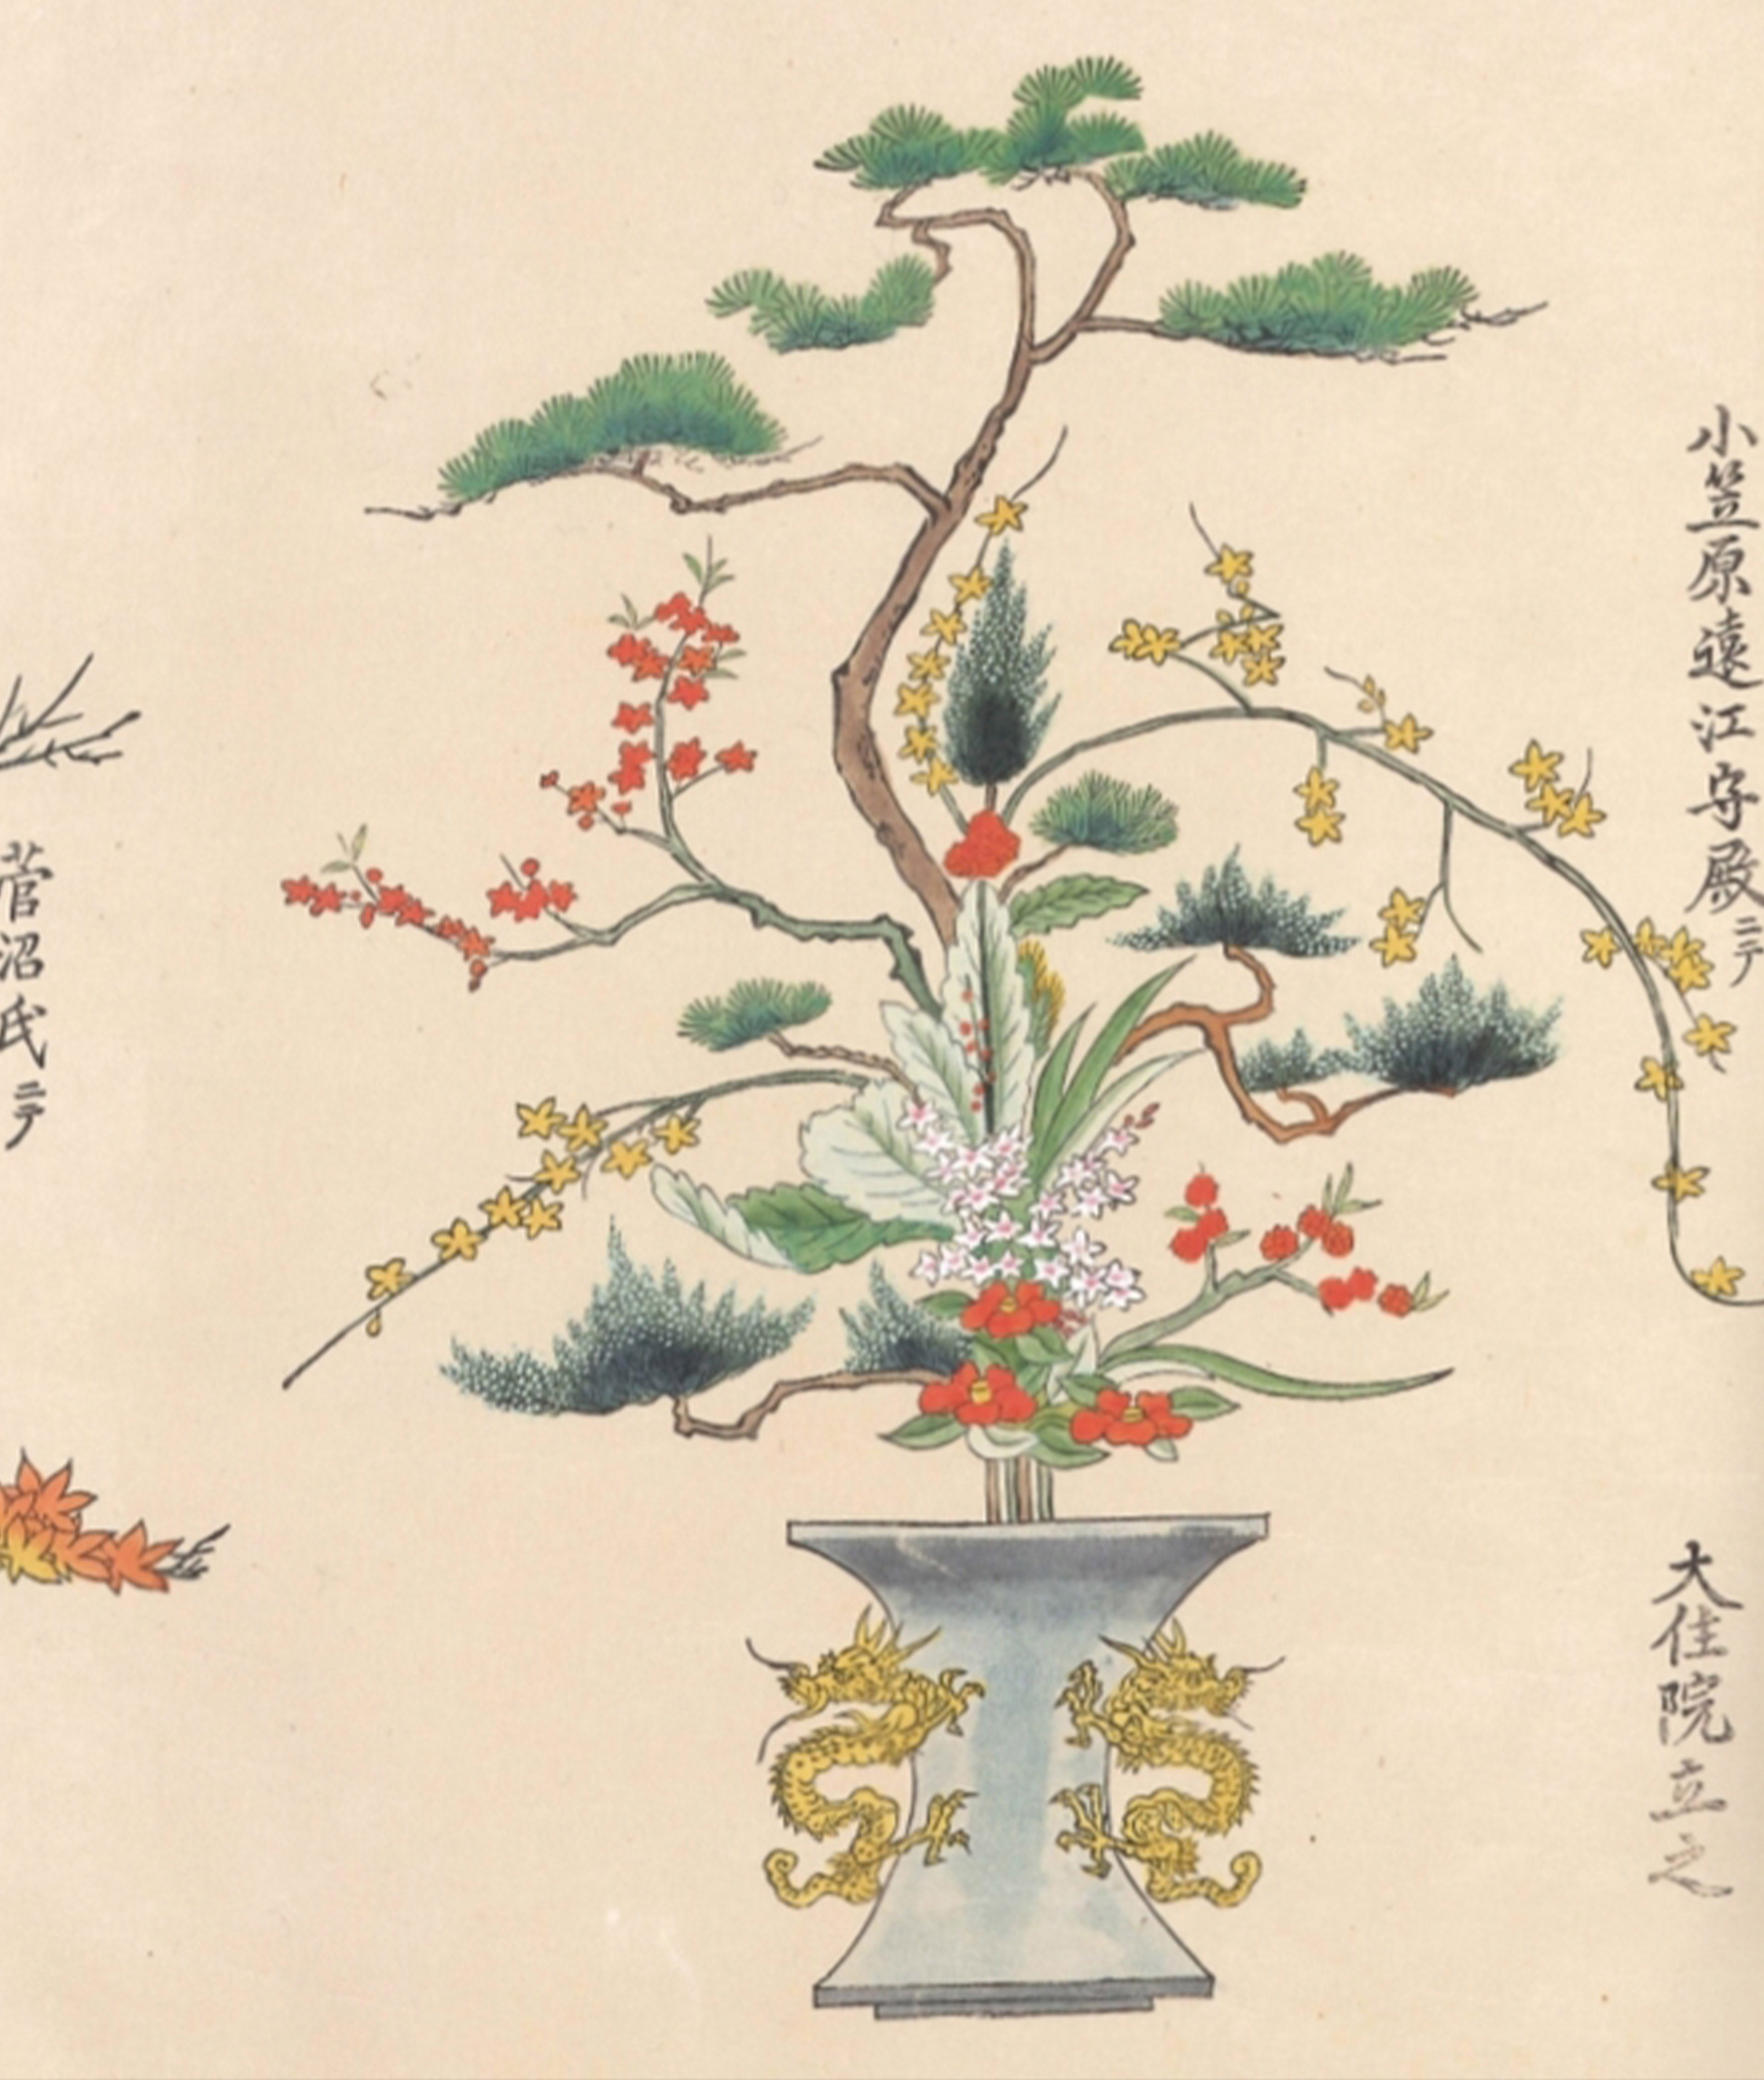 小笠原遠江守殿ニテ
大住院立之
菅沼氏ニテ